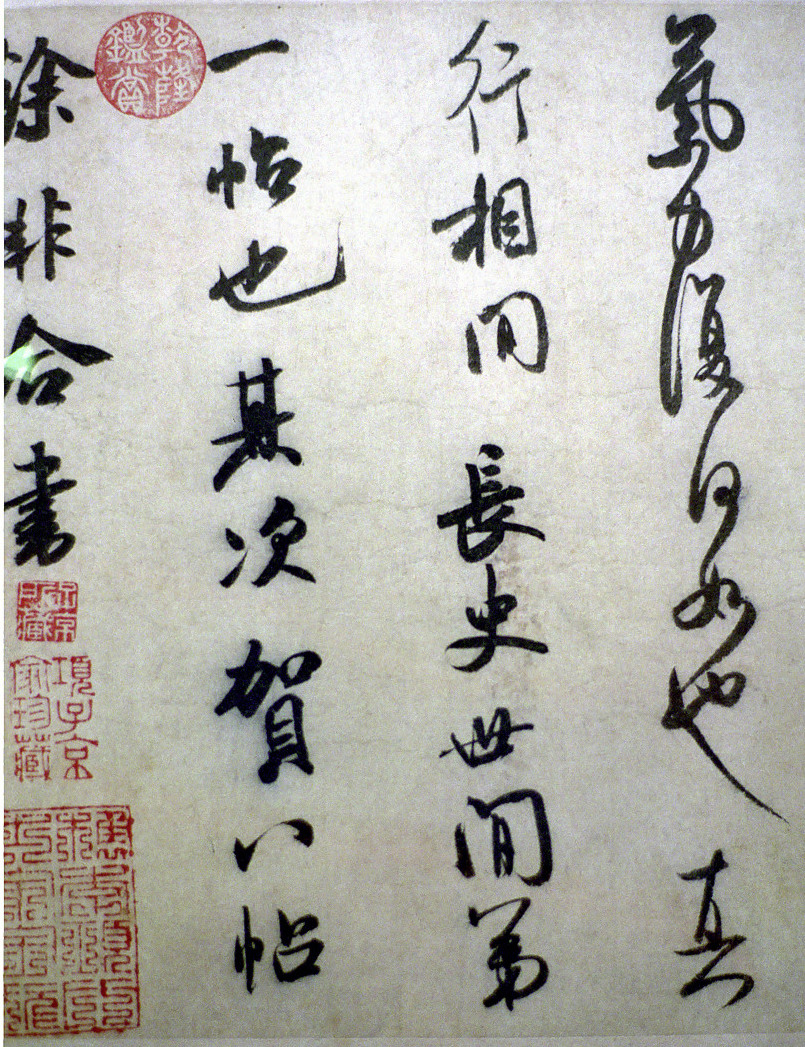 氣力復何如也真
行相間長史世間第
一帖也其次賀八帖
餘非合書
乾隆鑑賞
項子京家珍藏